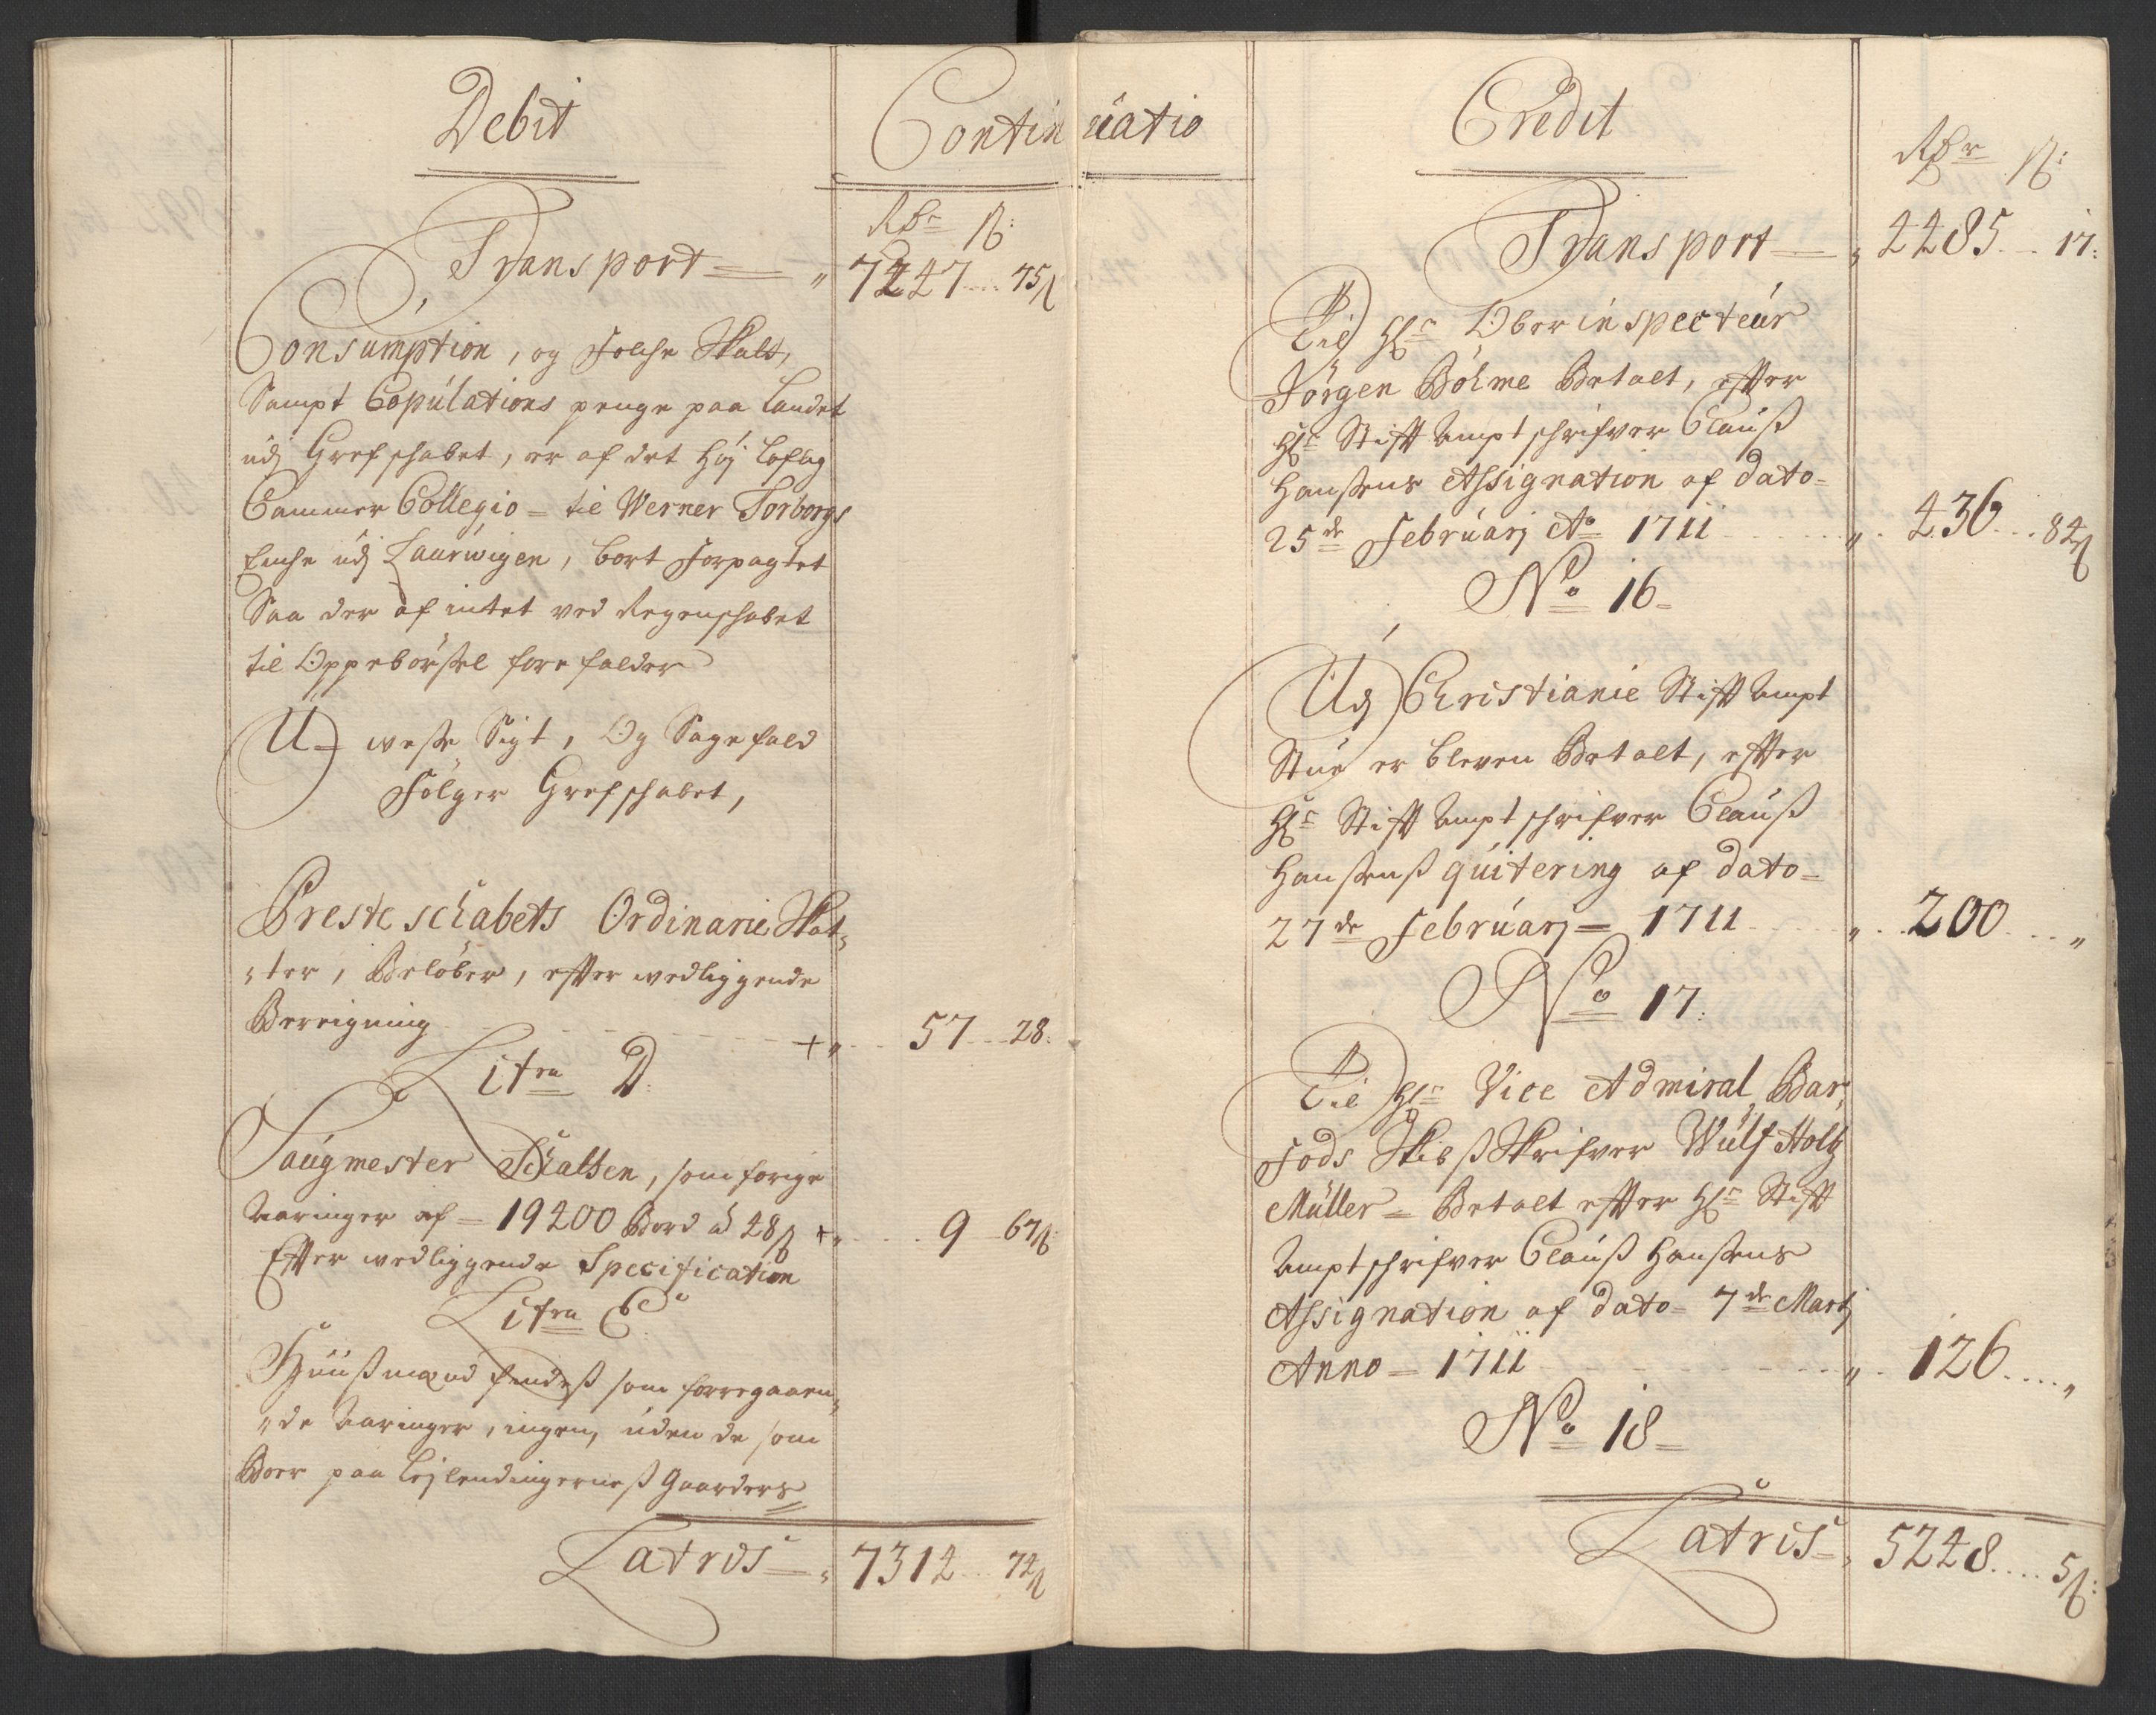 Debit
Continuatio
Rdr ß:
Transport = „ 7247 .... 75 ß
Consumption, og Folche Skatt,
Sampt Copulations penge paa Landet
udj Grefschabet, er af det Høj Loflig
Cammer Collegio = til Werner Torborgs
Enche udj Laurwigen, bort Forpagtet
Saa der af intet ved Regenschabet
til Oppebörßel forefalder
U= wiße Sigt, Og Sagefald
Fölger Grefschabet,
Presteschabets Ordinarie Skat-
„ter, Belöber, efter wedliggende
Bereigning - - - + „ .. 57 ... 28:
Litra D:
Saugmester Schatten, som forige
Aaringer af = 19200 Bord a 48 ß + „ .... 9 .. 67 ß:
Effter wedliggende Specification
Litra E:
Huußmænd findeß som forregaaen„
„de Aaringer, ingen, uden de som
Boer paa Lejlendingerneß Gaarder
Latris = „ 7314 ... 74 ß
Credit
Rdr ß:
Transport = „ 4485 ... 17:
Til Hr Oberinspecteur
Jörgen Böhme Betalt, effter
Hr Stifft Ampt schrifver Clauß
Hanßens Assignation af dato =
25de Februarj Ao 1711 ...... „ . 436 ... 84 ß
No 16 =
Udj Christianie Stifft Ampt
Stue er bleven Betalt, effter
Hr Stifft Ampt schrifver Clauß
Hanßenß quitering af dato =
27de Februarj = 1711 .... „ .. 200 .... „
No 17:
Til Hr Vice Admiral Bar„
Fods Skibß Skrifver Wulf Holtz
Müller = Betalt effter Hr Stifft
Amptschrifver Clauß Hanßens
Assignation af dato = 7de Martj
Anno = 1711 - - - - - - „ . 126 .... „
No 18 =
Latris = „ 5248 .... 5 ß: